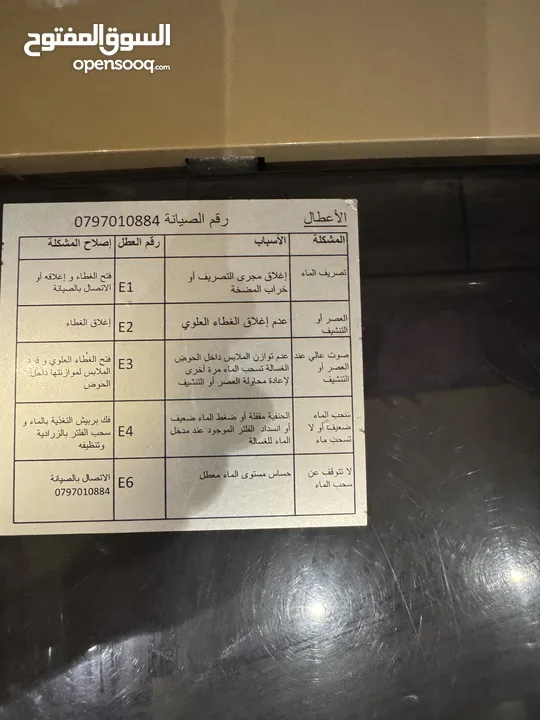 السوق المفتوح
opensooq.com
الأعطال
رقم الصيانة 0797010884
المشكلة
الأسباب
رقم العطل
إصلاح المشكلة
تصريف الماء
إغلاق مجرى التصريف أو
خراب المضخة
E1
فتح الغطاء و إغلاقه أو
الاتصال بالصيانة
العصر أو
التنشيف
عدم إغلاق الغطاء العلوي
E2
إغلاق الغطاء
صوت عالي عند
العصر أو
التنشيف
عدم توازن الملابس داخل الحوض
الغسالة تسحب الماء مرة أخرى
لإعادة محاولة العصر أو التنشيف
E3
فتح الغطاء العلوي و فرد
الملابس لموازنتها داخل
الحوض
سحب الماء
ضعيف أو لا
تسحب ماء
الحنفية مقفلة أو ضغط الماء ضعيف
أو انسداد الفلتر الموجود عند مدخل
الماء للغسالة
E4
فك بربيش التغذية بالماء و
سحب الفلتر بالزرادية
و تنظيفه
لا تتوقف عن
سحب الماء
حساس مستوى الماء معطل
E6
الاتصال بالصيانة
0797010884